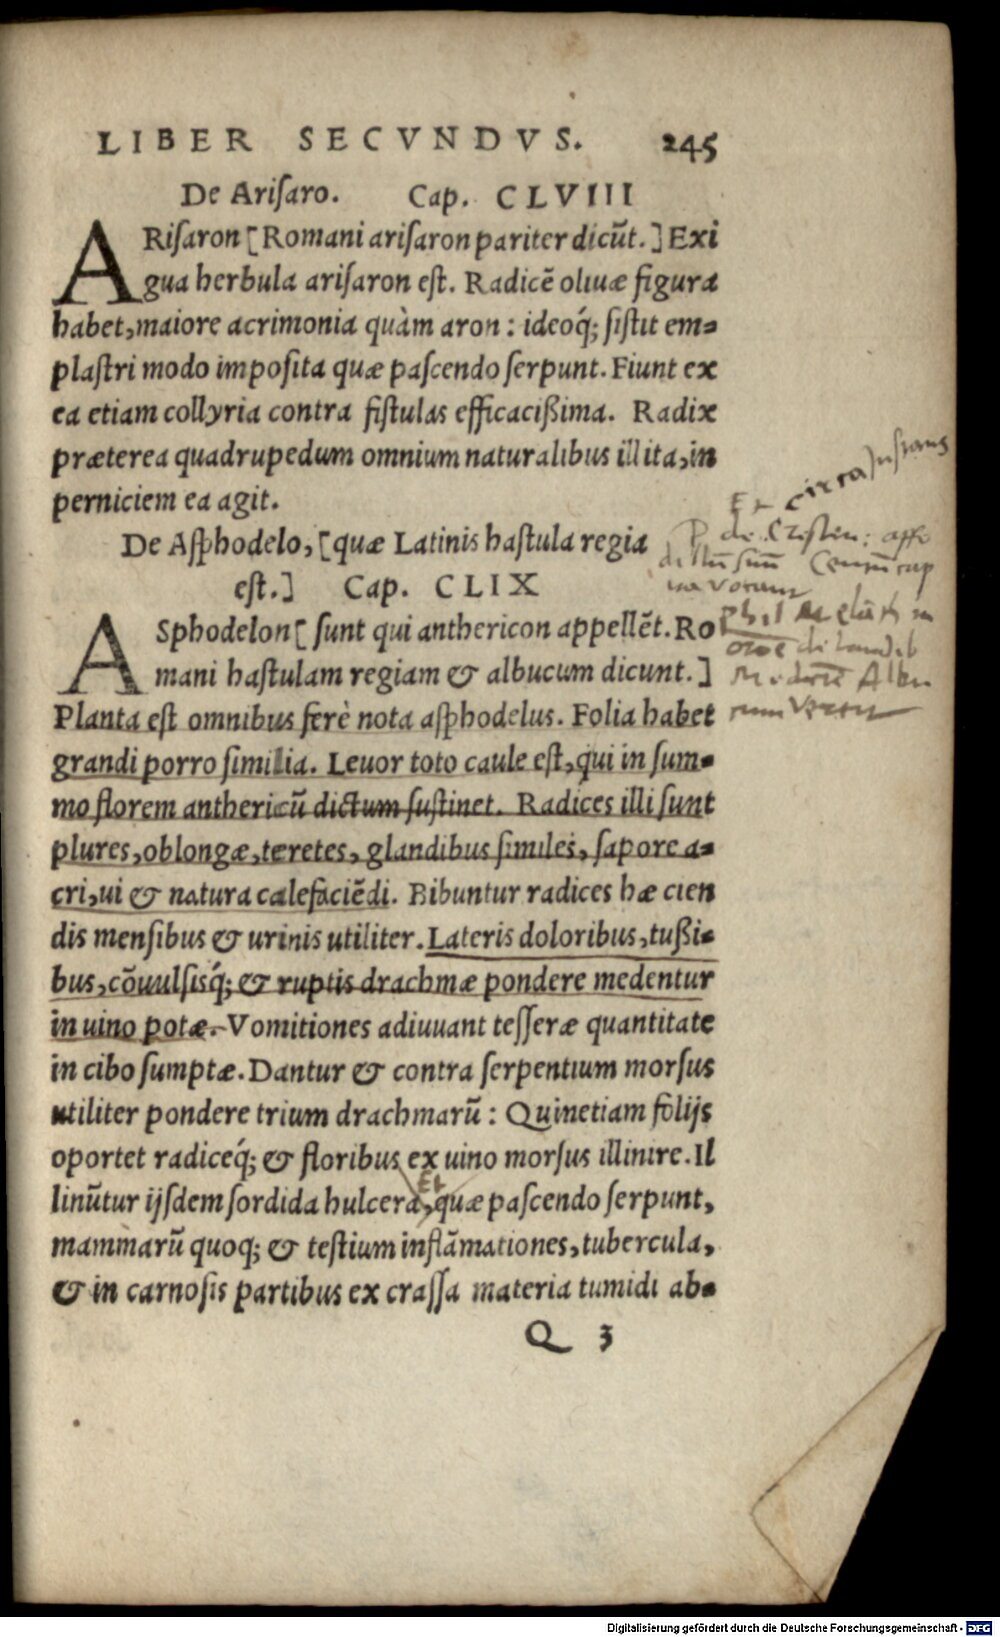 LIBER SECVNDVS. 245
De Ariſaro. Cap. CLVIII
ARiſaron [Romani ariſaron pariter dicũt.] Exi
gua herbula ariſaron eſt. Radicẽ oliuæ figura
habet, maiore acrimonia quàm aron: ideoq́; ſiſtit em-
plaſtri modo impoſita quæ paſcendo ſerpunt. Fiunt ex
ea etiam collyria contra fiſtulas efficacißima. Radix
præterea quadrupedum omnium naturalibus illita, in
perniciem ea agit.
De Aſphodelo, [quæ Latinis haſtula regia
eſt.] Cap. CLIX
ASphodelon [ ſunt qui anthericon appellẽt. Ro
mani haſtulam regiam & albucum dicunt.]
Planta eſt omnibus ferè nota aſphodelus. Folia habet
grandi porro ſimilia. Leuor toto caule eſt, qui in ſum-
mo florem anthericũ dictum ſuſtinet. Radices illi ſunt
plures, oblongæ, teretes, glandibus ſimiles, ſapore a-
cri, ui & natura calefaciẽdi. Bibuntur radices hæ cien
dis menſibus & urinis utiliter. Lateris doloribus, tußi-
bus, cõuulſisq́; & ruptis drachmæ pondere medentur
in uino potæ. Vomitiones adiuuant teſſeræ quantitate
in cibo ſumptæ. Dantur & contra ſerpentium morſus
utiliter pondere trium drachmarũ: Quinetiam folijs
oportet radiceq́; & floribus ex uino morſus illinire. Il
Et
linũtur ijſdem ſordida hulcera, quæ paſcendo ſerpunt,
mammarũ quoq; & teſtium inflãmationes, tubercula,
& in carnoſis partibus ex craſſa materia tumidi ab-
Q 3
Et circa
P. de
Phil
Digitalisierung gefördert durch die Deutsche Forschungsgemeinschaft - DFG